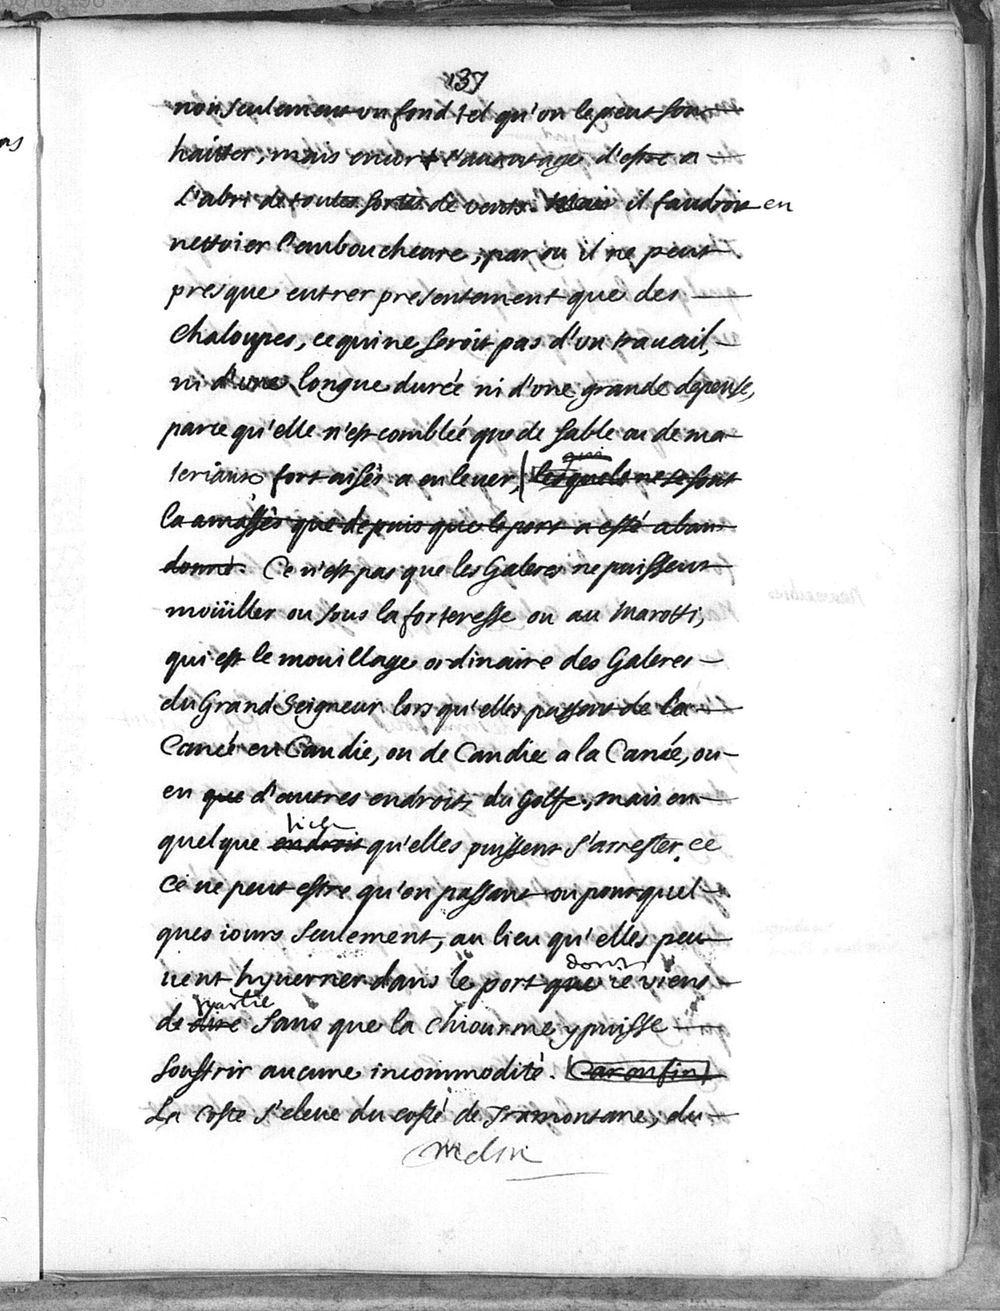 137
non seulement un fond tel qu'on le peut sou
haitter, mais encore l'auantage d'estre a
l'abri de toutes sortes de vents. Mais il faudroit en
nettoier l'embouchëure, par ou il ne peut
presque entrer presentement que des
chaloupes, ce qui ne seroit pas d'un trauail,
ni d'une longue durée ni d'une grande dépense,
parce qu'elle n'est comblée que de sable ou de ma
teriaux fort aisés a enleuer, lesquels ne se sont
qui
la amassés que depuis que le port a esté aban
donné. Ce n'est pas que les Galeres ne puissent
moüiller ou sous la forteresse ou au Marotti,
qui est le mouillage ordinaire des Galeres
du Grand Seigneur lors qu'elles passent de la
Canée en Candie, ou de Candie a la Canée, ou
en que d'autres endroits du Golfe, mais en
lieu
quelque endroit qu'elles puissent s'arrester, ce
ce ne peut estre qu'en passant ou pour quel
ques iours seulement, au lieu qu'elles peu
uent hyuerner dans le port que ie viens
dont
de dire sans que la chiourme y puisse
parler
souffrir aucune incommodité. Car enfin
La coste s'eleue du costé de Tramontane, du